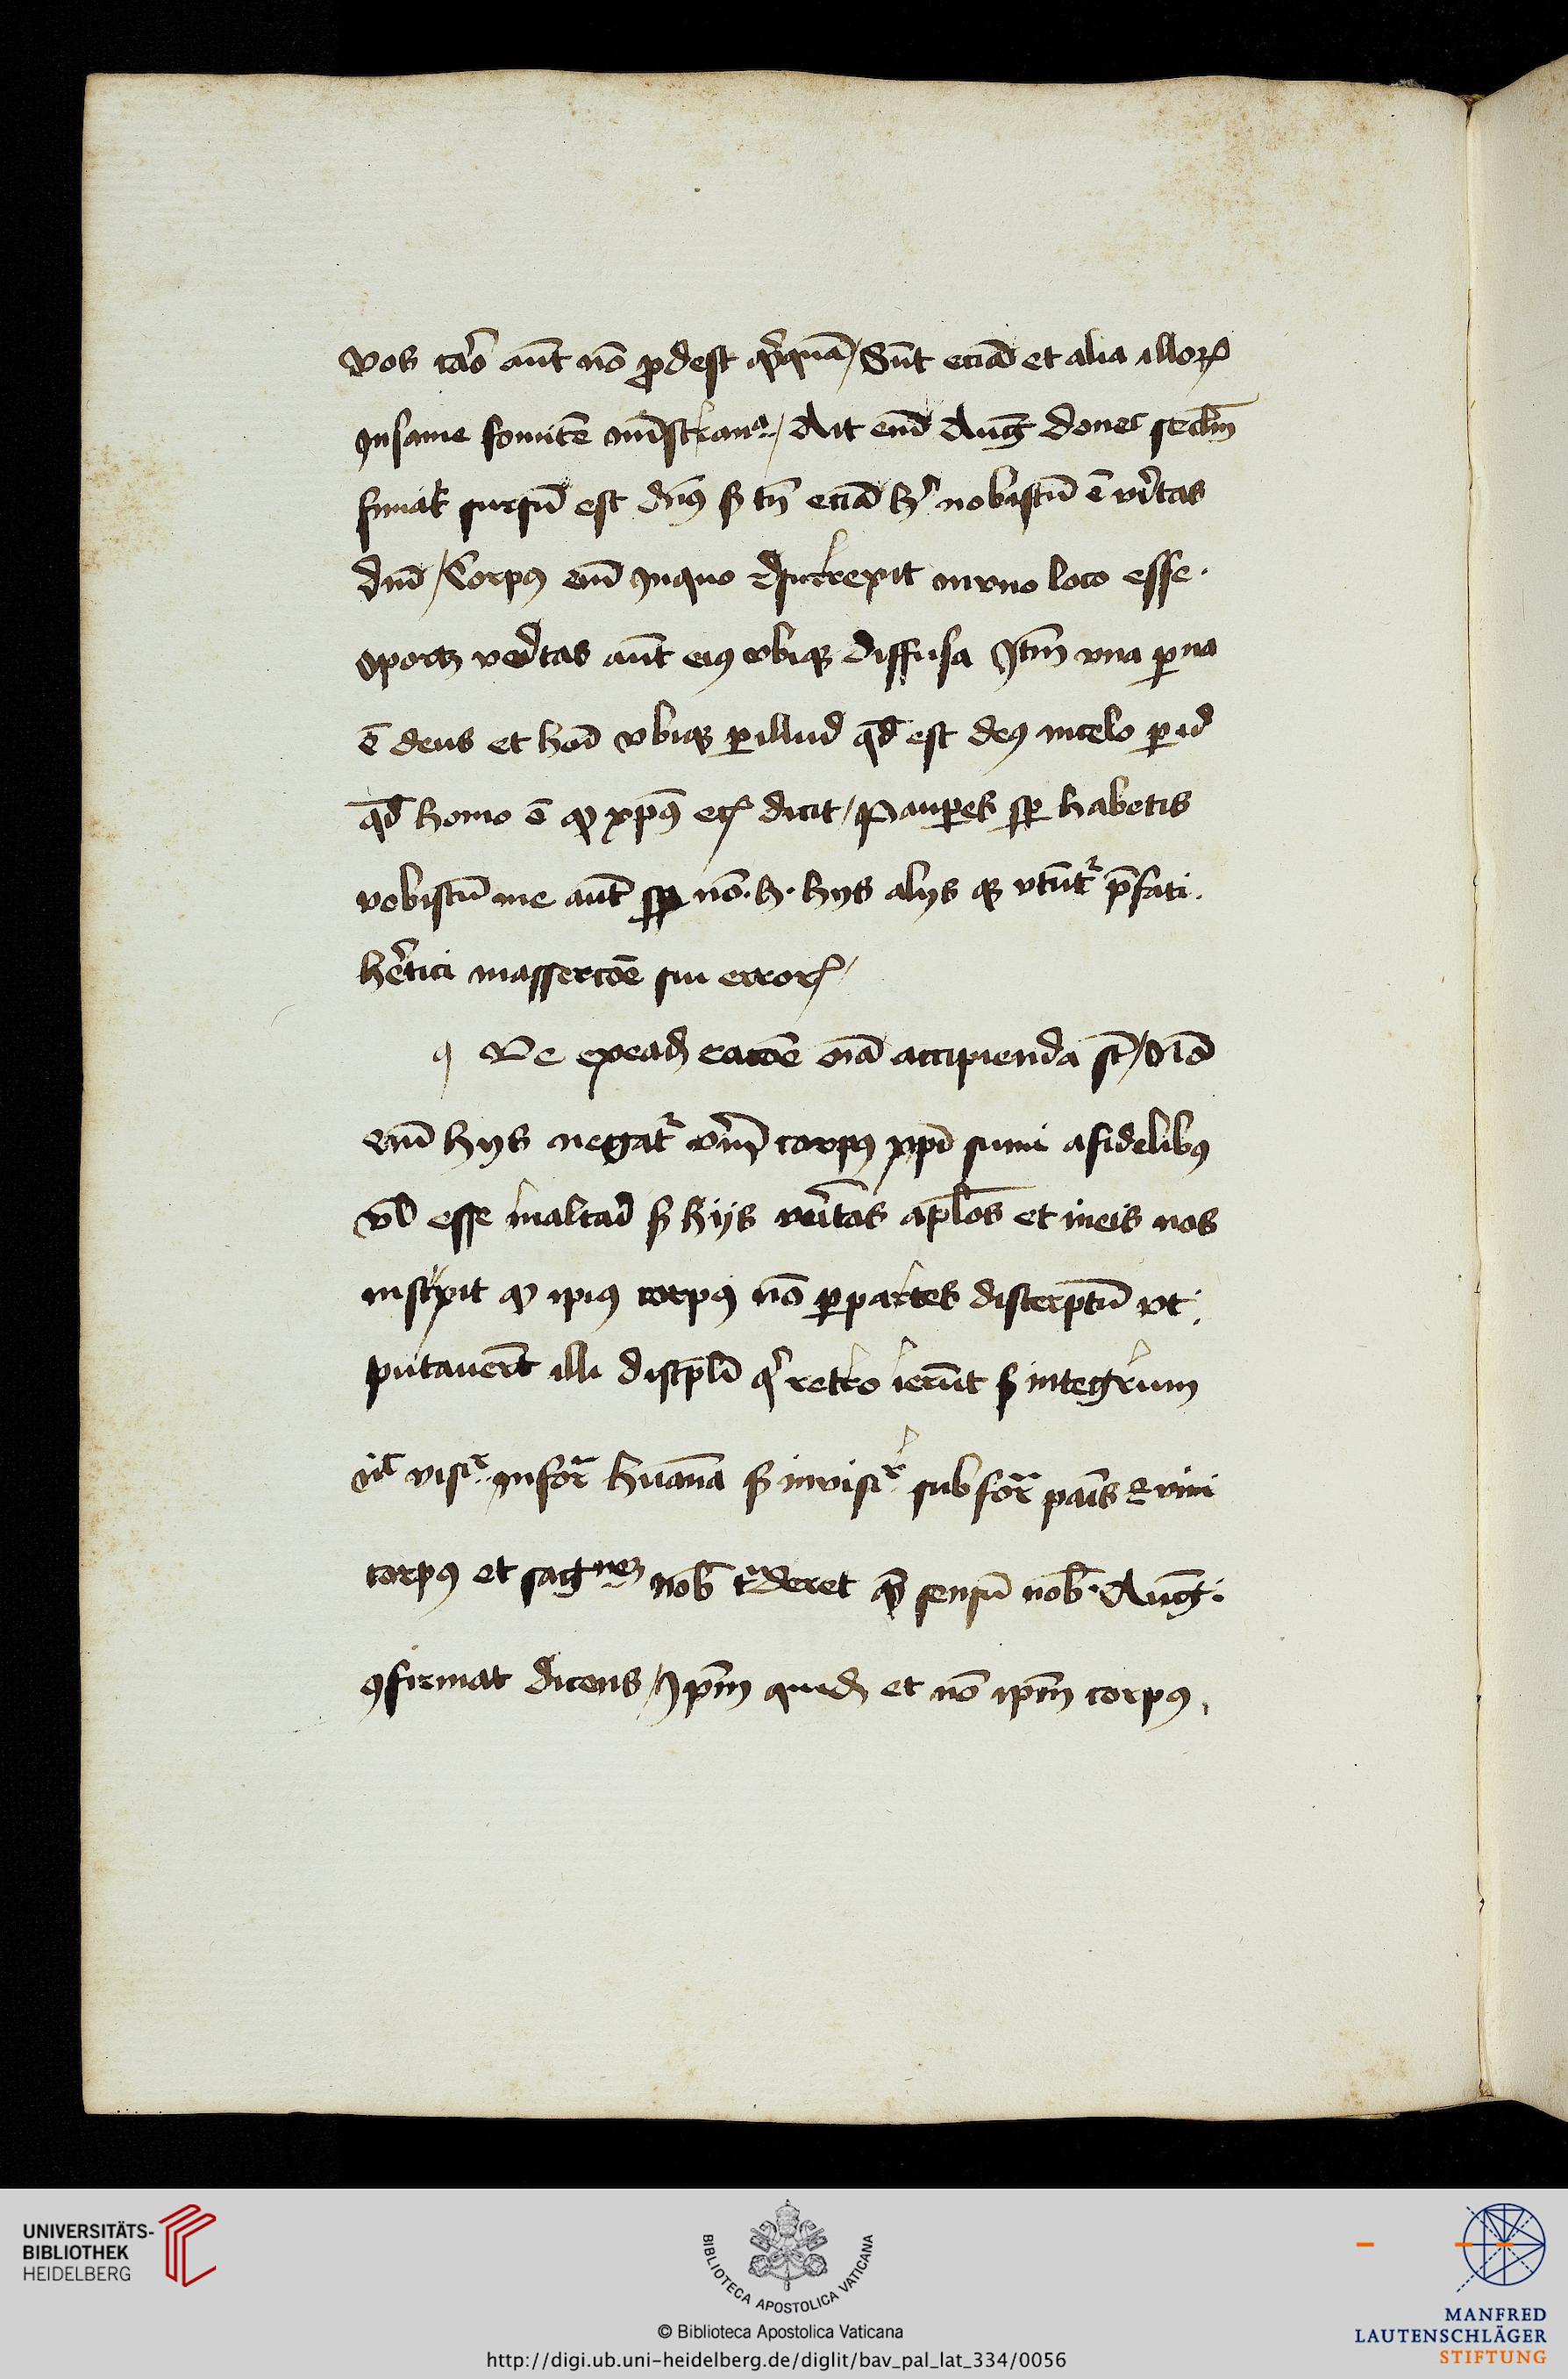 vos caro aut̄ nō ꝓdest qͥcquā / Sūt eciā et alia illoꝝ
Insanie fomitē mīstrancia / Ait enī Augꝰ donec sectm̄
finiat̉ sursū est dn̄s sꝫ tn̄ eciā hͥ nobiscū ē vͥtas
dnī / Corpꝰ enī Inquo resurrexit in vno loco esse ·
oportꝫ veͥtas aut̄ eiꝰ vbiqꝫ diffusa Itm̄ vna ꝑsona
ē deus et hoō vbiqꝫ ꝑ illud qd̄ est deꝰ in celo ꝑ id
qd̄ homo ē qꝫ xp̄s dicit / Pauꝑes sꝑ habetis
vobiscū me aut̄ sꝑ nō · h · hijs alijs qꝫ vtūtͬ p̄fati ·
heͬtici in assercōe sui erroꝝ /
De expeadꝫ racōe oīa accipienda st̄ / Nō
enī hijs negatͬ veͬm corpꝰ xp̄i sumi a fidelibꝰ
vl̉ esse in altari sꝫ hijs veͥtas aplōs et in eis nos
instruxit qꝫ ip̄iꝰ corpꝰ nō ꝑ partes discerptū vt ·
putauer̄t illi discipl̄i qͥ retro ierūt sꝫ integrum
nͨ visiͬ Infoͬ huana sꝫ invisiͬ sub foͬ paīs et vini
corpꝰ et sagnēꝫ nob̄ tͣderet qꝫ sensū nob̄ · Augꝰ ·
ꝯfirmat dicens / Ip̄m quidꝫ et nō ip̄m corpꝰ ·
UNIVERSITÄTS-
BIBLIOTHEK
HEIDELBERG
BIBLIOTECA APOSTOLICA VATICANA
© Biblioteca Apostolica Vaticana
http://digi.ub.uni-heidelberg.de/diglit/bav_pal_lat_334/0056
MANFRED
LAUTENSCHLÄGER
STIFTUNG